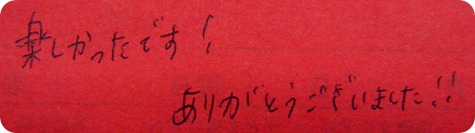 楽しかったです！
ありがとうございました!!